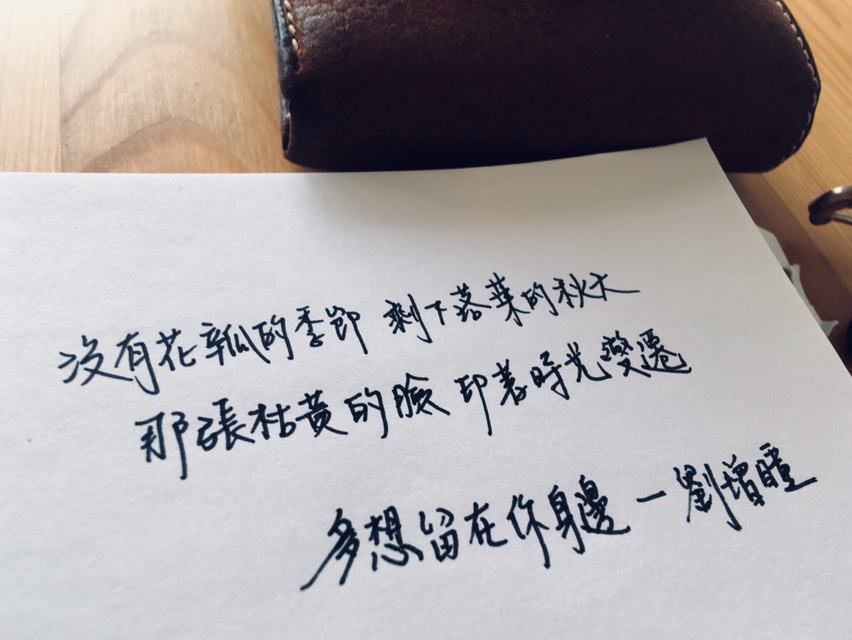 沒有花瓣的季節 剩下落葉的秋天
那張枯黃的臉 印著時光變遷
多想留在你身邊 — 劉增瞳